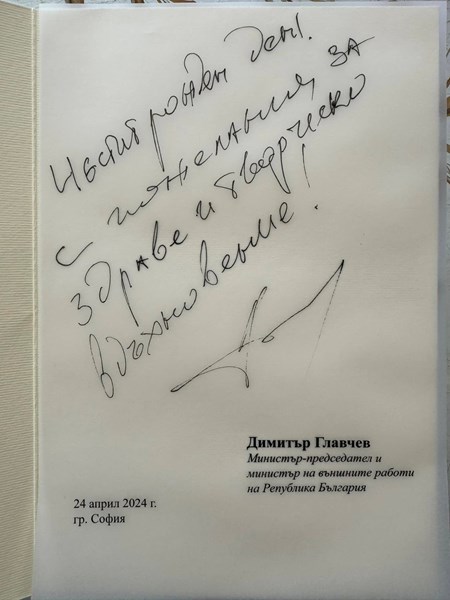 Честит рожден ден!
с пожелания за
здраве и творческо
вдъхновение!
Димитър Главчев
Министър-председател и
министър на външните работи
на Република България
24 април 2024 г.
гр. София